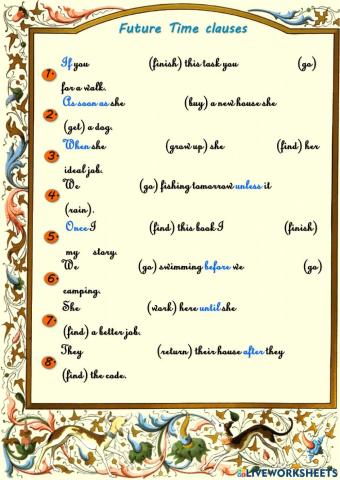 Future Time clauses
If you (finish) this task you (go)
1.
for a walk.
As soon as she (buy) a new house she
2.
(get) a dog.
When she (grow up) she (find) her
3.
ideal job.
We (go) fishing tomorrow unless it
4
(rain).
Once I (find) this book I (finish)
5
my story.
We (go) swimming before we (go)
6
camping.
She (work) here until she
7.
(find) a better job.
They (return) their house after they
8.
(find) the code.
LIVEWORKSHEETS